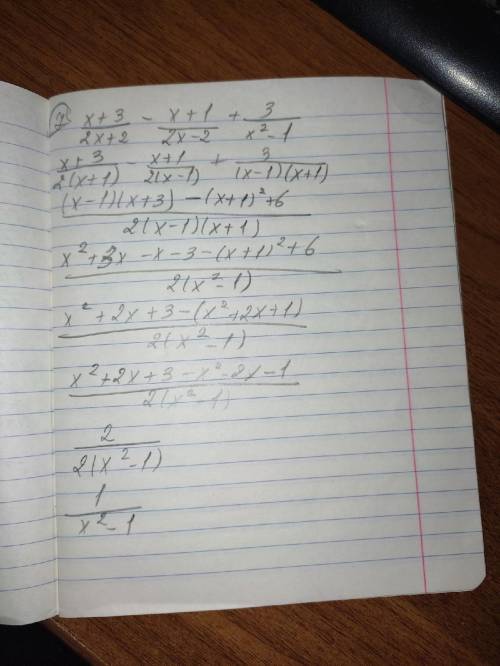 7) (x+3)/(2x+2) - (x+1)/(2x-2) + 3/(x²-1)
(x+3)/(2(x+1)) - (x+1)/(2(x-1)) + 3/((x-1)(x+1))
((x-1)(x+3) - (x+1)²+6)/(2(x-1)(x+1))
(x²+3x -x-3-(x+1)²+6)/(2(x²-1))
(x²+2x+3-(x²+2x+1))/(2(x²-1))
(x²+2x+3-x²-2x-1)/(2(x²-1))
2/(2(x²-1))
1/(x²-1)